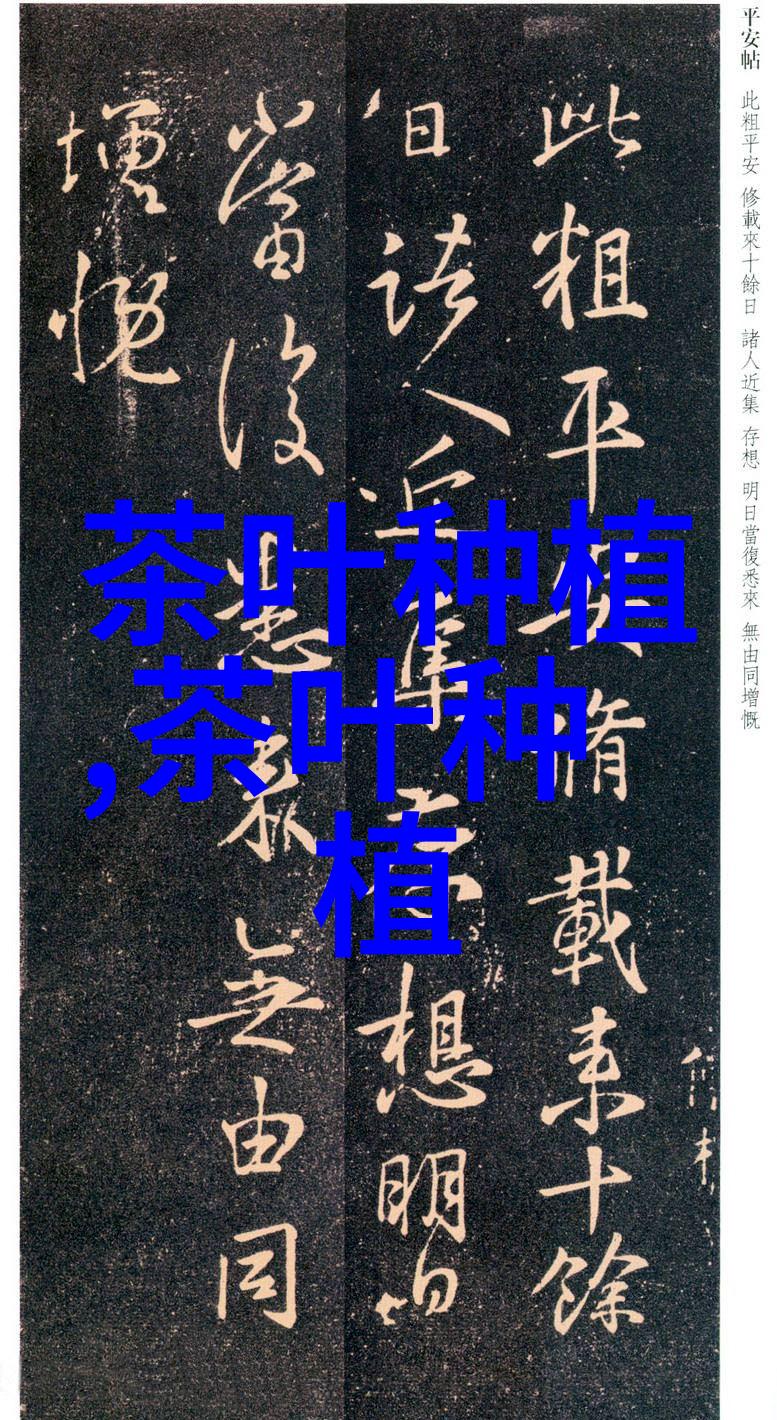 平安帖 此粗平安 修載來十餘日 諸人近集 存想 明日當復悉來 無由同增慨
此粗平安脩載来十餘
日諸人近集存想明日
當復悉来無由同
增慨
茶叶种植
,茶叶种
植